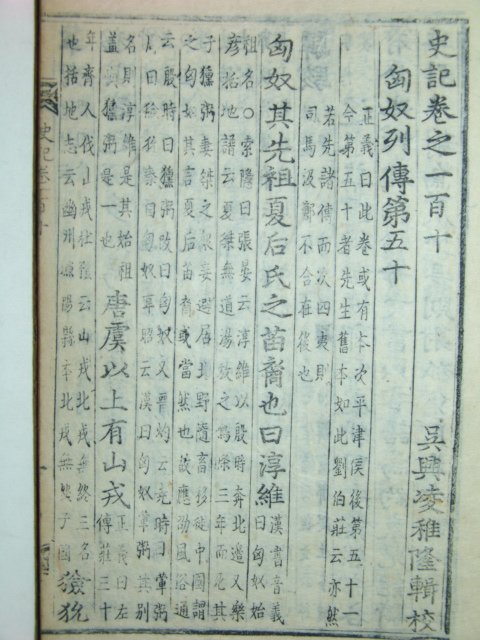 史記卷之一百十 吳興凌稚隆輯校
匈奴列傳第五十
正義曰此卷或有本次平津侯後第五十一
今第五十者先生舊本如此劉伯莊云亦然
若先諸傳而次四夷則
司馬汲鄭不合在後也
匈奴其先祖夏后氏之苗裔也曰淳維 漢書音義
曰匈奴始
祖名○索隱曰張晏云淳維以殷時奔北邊又樂
彥括地譜云夏桀無道湯放之鳴條三年而死其
子獯粥妻桀之衆妾避居北野隨畜移徙中國謂
之匈奴其言夏后苗裔或當然也故應劭風俗通
云殷時曰獯粥改曰匈奴又晉灼云堯時曰葷粥
周曰獫狁秦曰匈奴韋昭云漢曰匈奴葷粥其別
名則淳維是其始祖
蓋與獯粥是一也
唐虞以上有山戎
正義曰左
傳莊三十
年齊人伐山戎杜預云山戎北戎無終三名
也括地志云幽州漁陽縣本北戎無終子國
獫狁
史記卷一百十
一